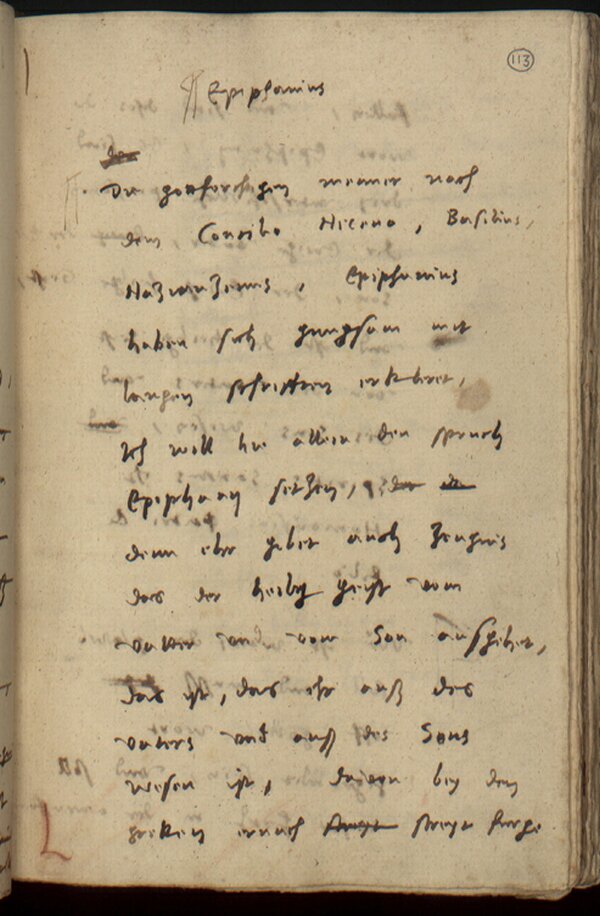 113
Epiphanius
Die gottforchtigen menner nach
dem Concilio Niceno, Basilius,
Nazianzenus, Epiphanius
haben sich gnugsam mit
langen schrifften erkleret,
Ich will hie allein den spruch
Epiphanij setzen,
denn ehr gibet auch zeugnis
das der heilig geist vom
vatter vnd vom Son ausgehet,
das ist, das ehr auß des
vaters vnd auß des Sons
wesen ist, dauon bey den
greken ernach streyt